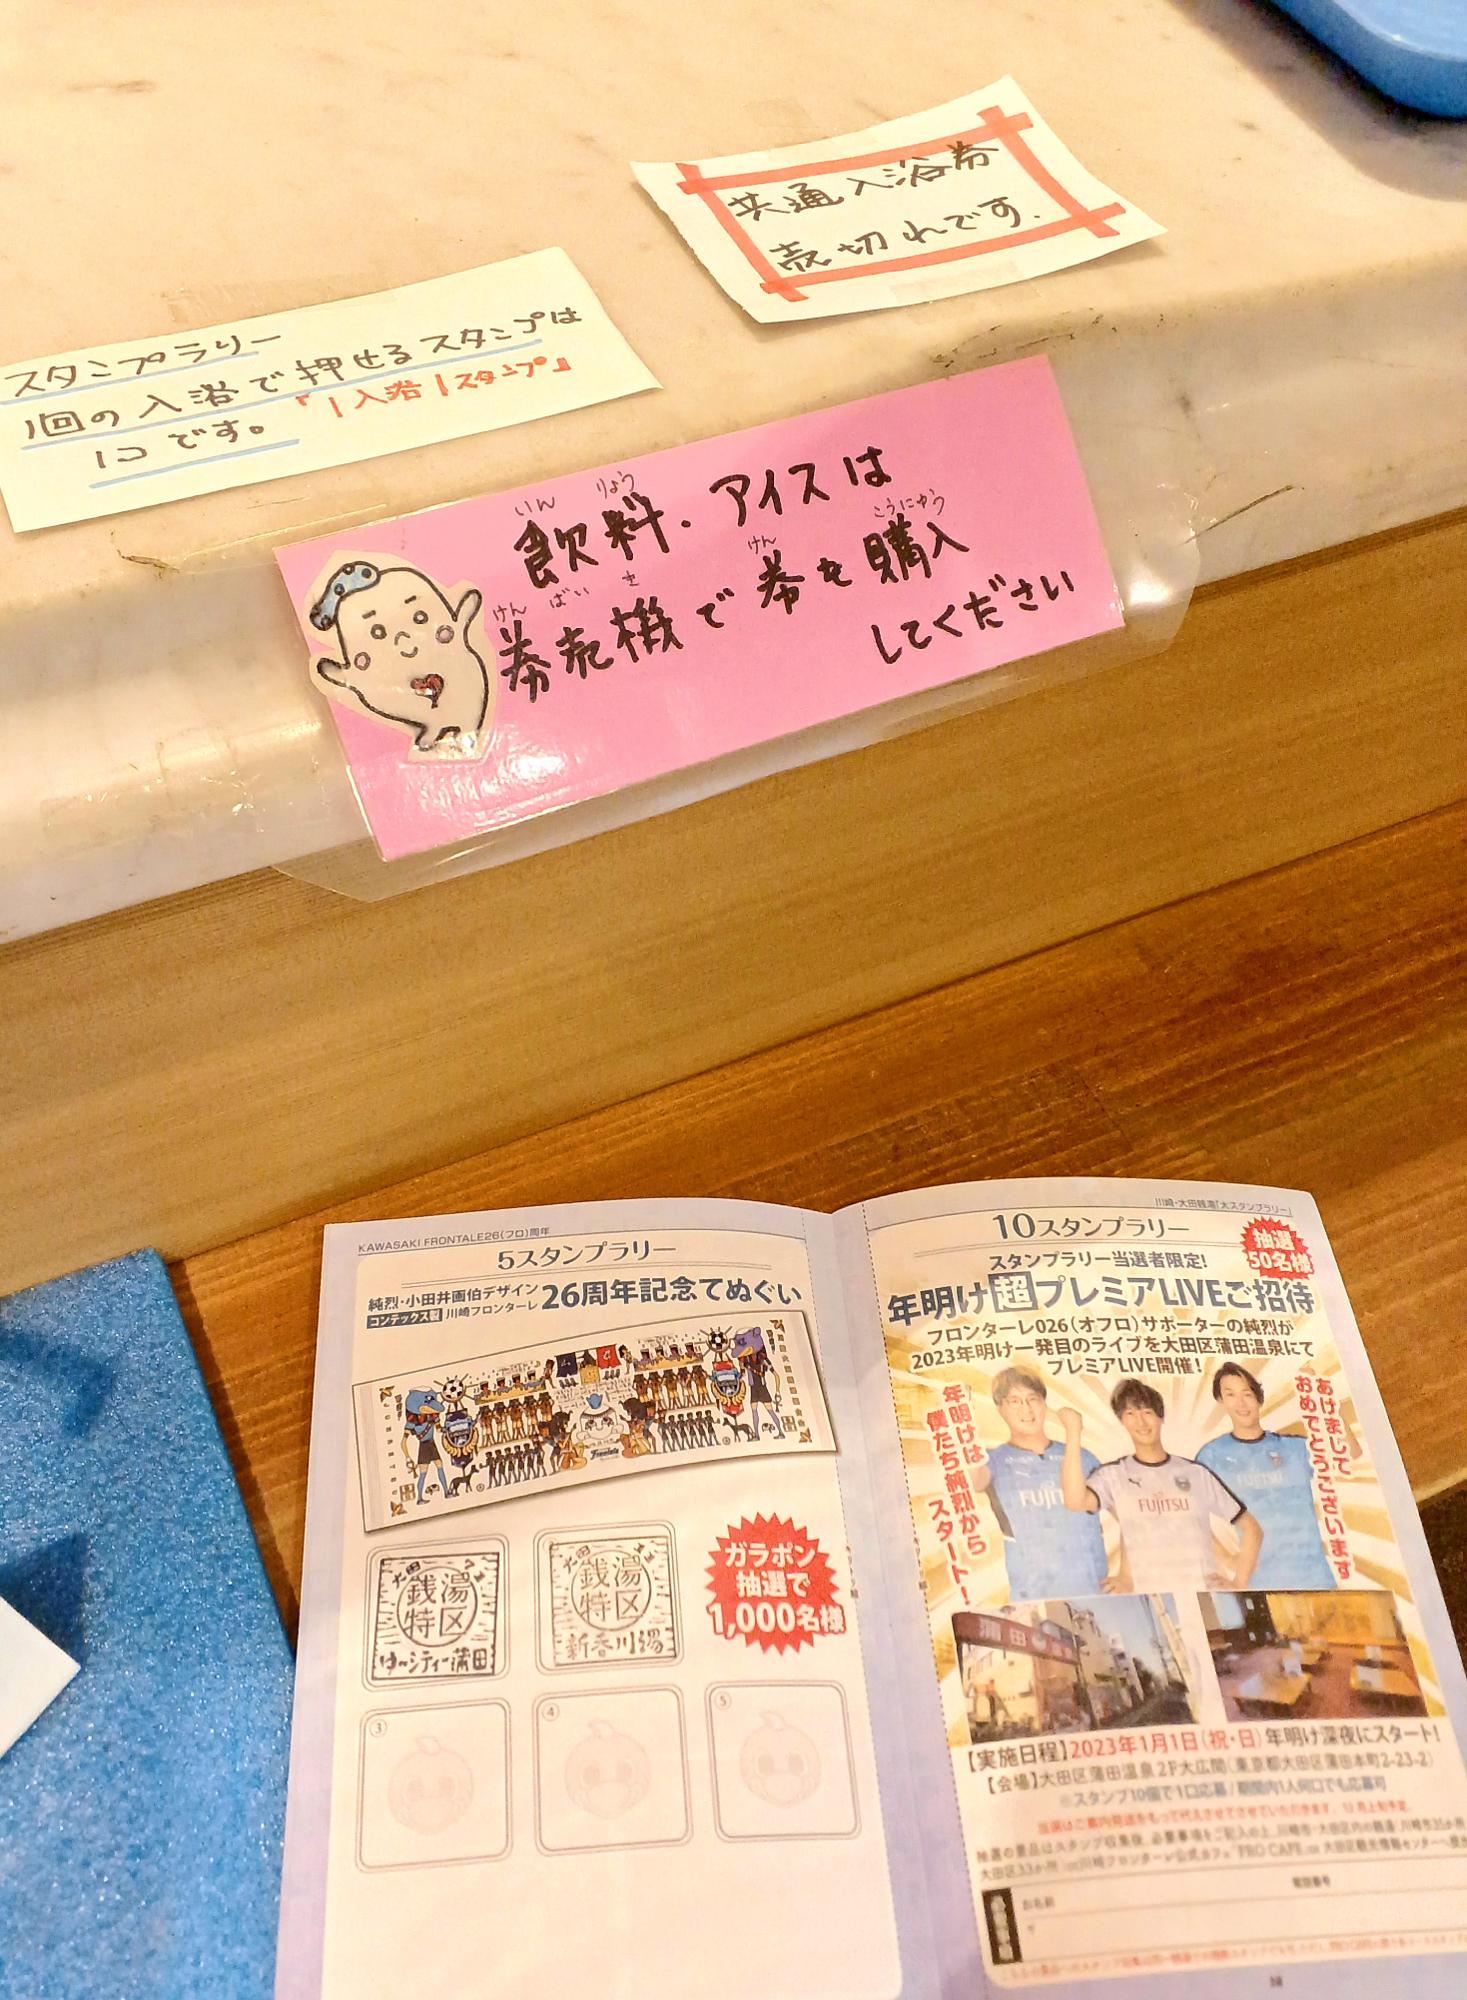 共通入浴券
売切れです.
スタンプラリー
1回の入浴で押せるスタンプは
1コです。『1入浴1スタンプ』
いん りょう
飲料、アイスは
けん ばい き けん こうにゅう
券売機で券を購入
してください
KAWASAKI FRONTALE26(フロ)周年
5スタンプラリー
純烈・小田井画伯デザイン
コンテックス製 川崎フロンターレ
26周年記念てぬぐい
大田
銭湯
特区
ゆ〜シティー蒲田
大田
銭湯
特区
新呑川湯
ガラポン
抽選で
1,000名様
③
④
⑤
川崎・大田銭湯「大スタンプラリー」
10スタンプラリー
抽選
50名様
スタンプラリー当選者限定!
年明け超プレミアLIVEご招待
フロンターレ026(オフロ)サポーターの純烈が
2023年明け一発目のライブを大田区蒲田温泉にて
プレミアLIVE開催!
年明けは
僕たち純烈から
スタート!
あけまして
おめでとうございます
FUJITSU
FUJITSU
【実施日程】2023年1月1日(祝・日)年明け深夜にスタート!
【会場】大田区蒲田温泉2F大広間(東京都大田区蒲田本町2-23-2)
※スタンプ10個で1口応募/期間内1人何口でも応募可
当選はご案内発送をもって代えさせてさせていただきます。12月上旬予定。
お名前
電話番号
〒